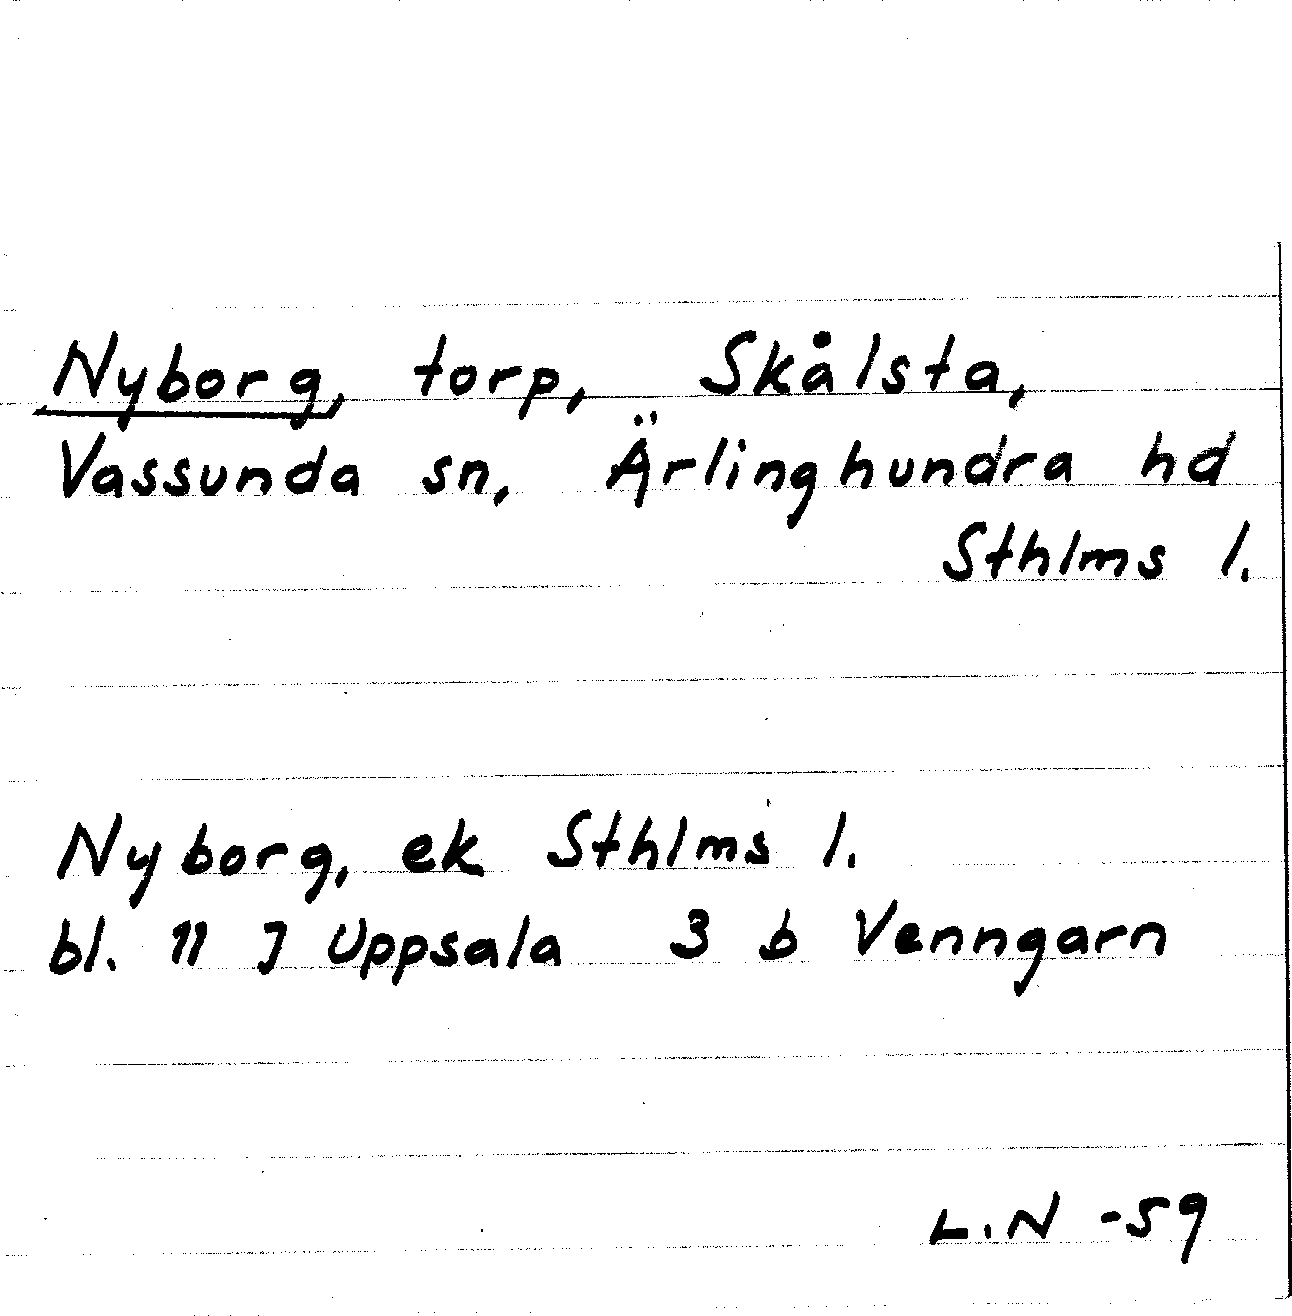 Nyborg, torp, Skålsta,
Vassunda sn, Ärlinghundra hd
Sthlms l.
Nyborg, ek Sthlms l.
bl. 11 J Uppsala 3 b Venngarn
L.N -59